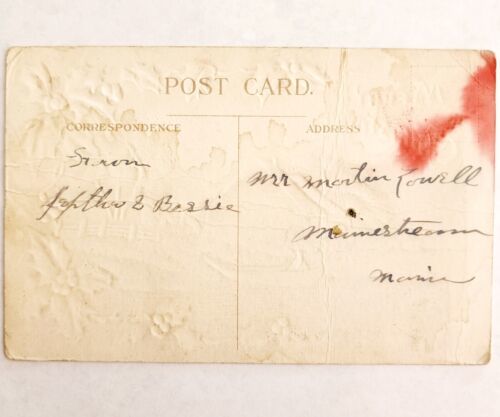 POST CARD.
CORRESPONDENCE
ADDRESS
From
Jeptha & Bessie
Mr Martin Lowell
Mainestream
Maine